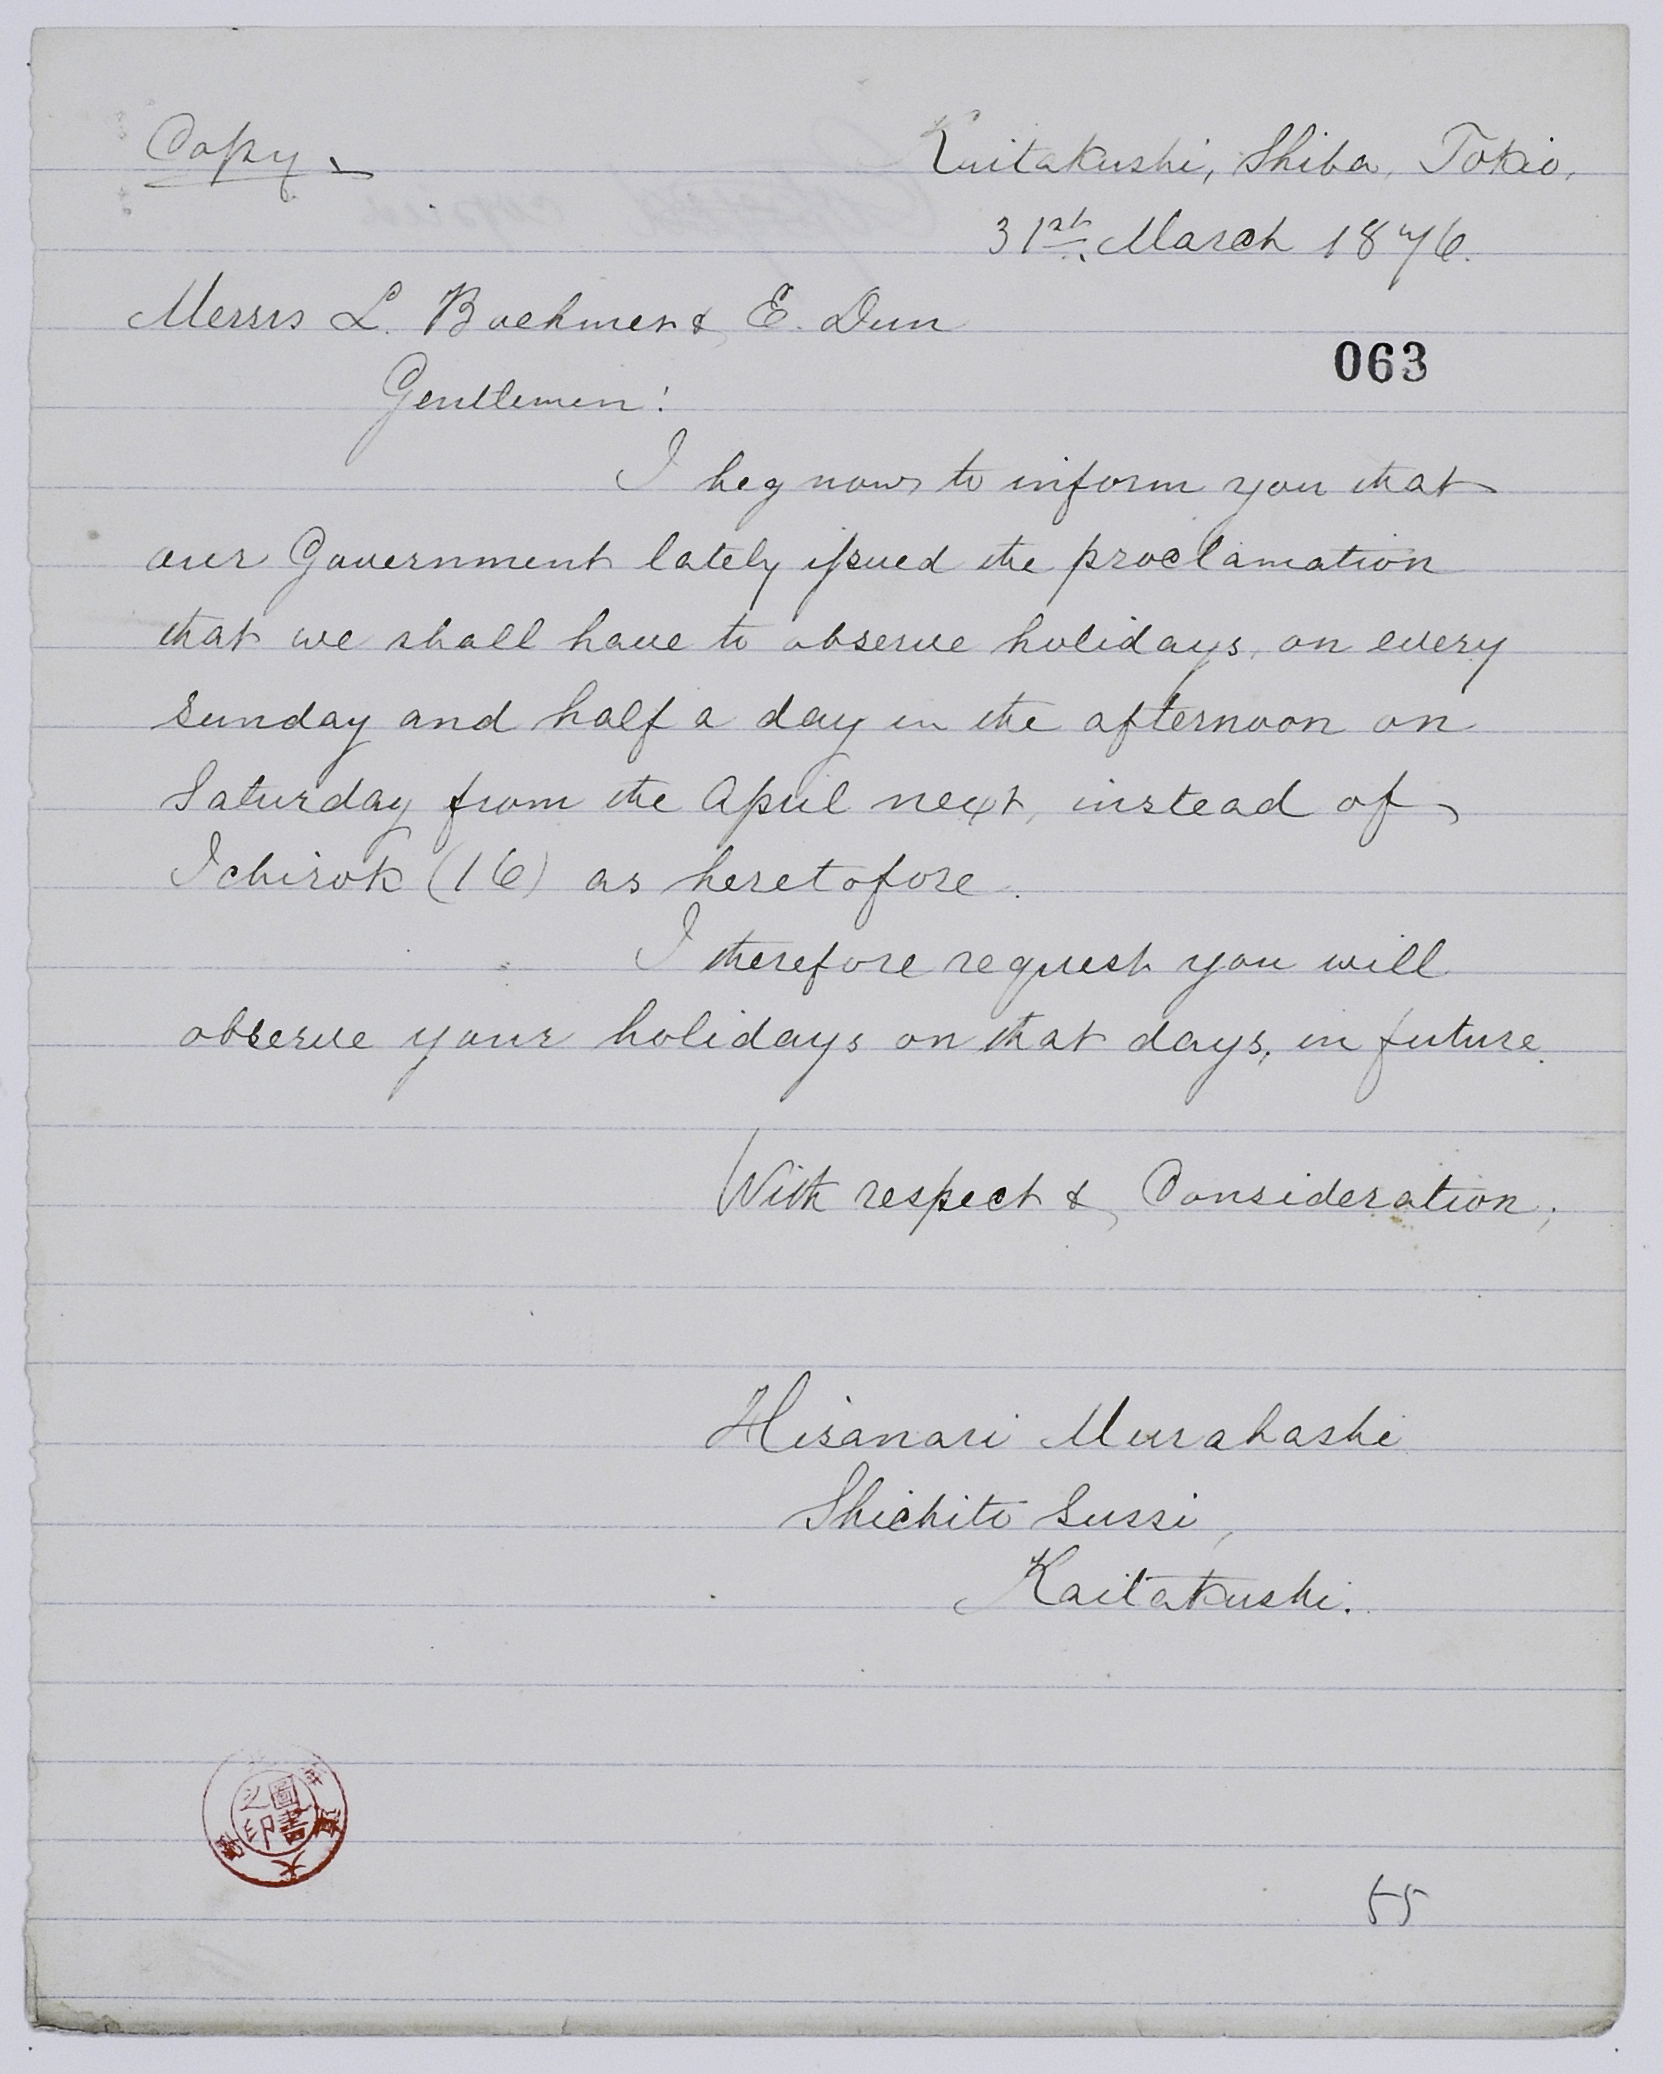 Copy.
Kaitakushi, Shiba, Tokio,
31st. March 1876.
Messrs L. Boehmer & E. Dun
063
Gentlemen:
I beg now to inform you that
our Government lately issued the proclamation
that we shall have to observe holidays, on every
Sunday and half a day in the afternoon on
Saturday from the April next, instead of
Ichirok (16) as heretofore.
I therefore request you will
observe your holidays on that days, in future.
With respect & Consideration,
Hisanari Murahashi
Shichito Sussi,
Kaitakushi.
圖書之印
55